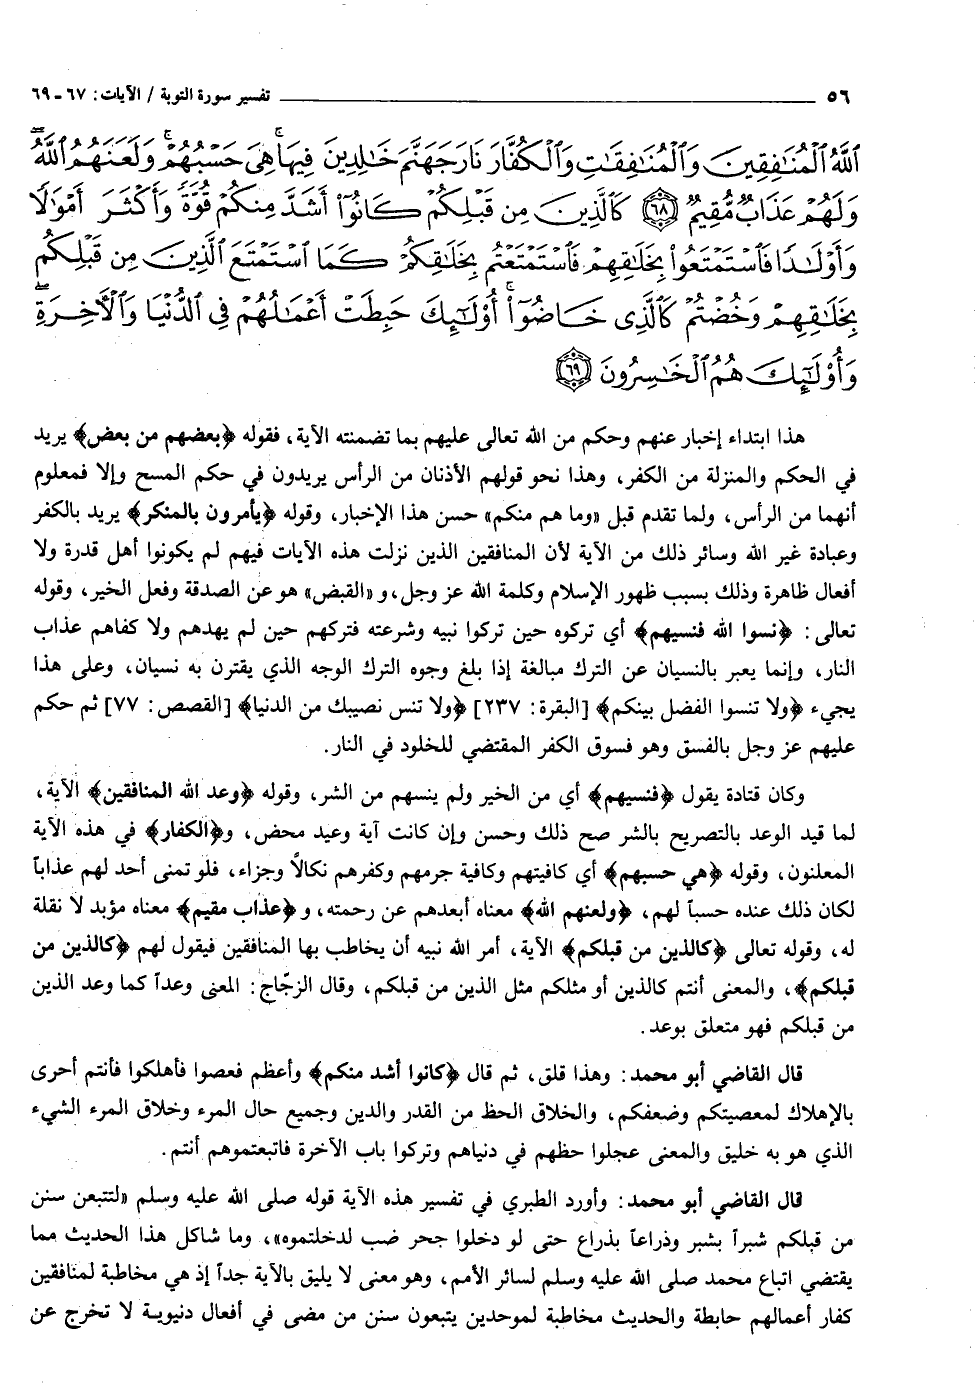 ٥٦ تفسير سورة التوبة / الآيات: ٦٧ - ٦٩
ٱللَّهُ ٱلْمُنَٰفِقِينَ وَٱلْمُنَٰفِقَٰتِ وَٱلْكُفَّارَ نَارَ جَهَنَّمَ خَٰلِدِينَ فِيهَا ۚ هِىَ حَسْبُهُمْ ۚ وَلَعَنَهُمُ ٱللَّهُ ۖ
وَلَهُمْ عَذَابٌ مُّقِيمٌ ٦٨ كَٱلَّذِينَ مِن قَبْلِكُمْ كَانُوٓا۟ أَشَدَّ مِنكُمْ قُوَّةً وَأَكْثَرَ أَمْوَٰلًا
وَأَوْلَٰدًا فَٱسْتَمْتَعُوا۟ بِخَلَٰقِهِمْ فَٱسْتَمْتَعْتُم بِخَلَٰقِكُمْ كَمَا ٱسْتَمْتَعَ ٱلَّذِينَ مِن قَبْلِكُم
بِخَلَٰقِهِمْ وَخُضْتُمْ كَٱلَّذِى خَاضُوٓا۟ ۚ أُو۟لَٰٓئِكَ حَبِطَتْ أَعْمَٰلُهُمْ فِى ٱلدُّنْيَا وَٱلْءَاخِرَةِ ۖ
وَأُو۟لَٰٓئِكَ هُمُ ٱلْخَٰسِرُونَ ٦٩
هذا ابتداء إخبار عنهم وحكم من الله تعالى عليهم بما تضمنته الآية، فقوله ﴿بعضهم من بعض﴾ يريد
في الحكم والمنزلة من الكفر، وهذا نحو قولهم الأذنان من الرأس يريدون في حكم المسح وإلا فمعلوم
أنهما من الرأس، ولما تقدم قبل «وما هم منكم» حسن هذا الإخبار، وقوله ﴿يأمرون بالمنكر﴾ يريد بالكفر
وعبادة غير الله وسائر ذلك من الآية لأن المنافقين الذين نزلت هذه الآيات فيهم لم يكونوا أهل قدرة ولا
أفعال ظاهرة وذلك بسبب ظهور الإسلام وكلمة الله عز وجل، و «القبض» هو عن الصدقة وفعل الخير، وقوله
تعالى: ﴿نسوا الله فنسيهم﴾ أي تركوه حين تركوا نبيه وشرعته فتركهم حين لم يهدهم ولا كفاهم عذاب
النار، وإنما يعبر بالنسيان عن الترك مبالغة إذا بلغ وجوه الترك الوجه الذي يقترن به نسيان، وعلى هذا
يجيء ﴿ولا تنسوا الفضل بينكم﴾ [البقرة: ٢٣٧] ﴿ولا تنس نصيبك من الدنيا﴾ [القصص: ٧٧] ثم حكم
عليهم عز وجل بالفسق وهو فسوق الكفر المقتضي للخلود في النار.
وكان قتادة يقول ﴿فنسيهم﴾ أي من الخير ولم ينسهم من الشر، وقوله ﴿وعد الله المنافقين﴾ الآية،
لما قيد الوعد بالتصريح بالشر صح ذلك وحسن وإن كانت آية وعيد محض، و﴿الكفار﴾ في هذه الآية
المعلنون، وقوله ﴿هي حسبهم﴾ أي كافيتهم وكافية جرمهم وكفرهم نكالاً وجزاء، فلو تمنى أحد لهم عذاباً
لكان ذلك عنده حسباً لهم، ﴿ولعنهم الله﴾ معناه أبعدهم عن رحمته، و ﴿عذاب مقيم﴾ معناه مؤبد لا نقلة
له، وقوله تعالى ﴿كالذين من قبلكم﴾ الآية، أمر الله نبيه أن يخاطب بها المنافقين فيقول لهم ﴿كالذين من
قبلكم﴾، والمعنى أنتم كالذين أو مثلكم مثل الذين من قبلكم، وقال الزجّاج: المعنى وعداً كما وعد الذين
من قبلكم فهو متعلق بوعد.
قال القاضي أبو محمد: وهذا قلق، ثم قال ﴿كانوا أشد منكم﴾ وأعظم فعصوا فأهلكوا فأنتم أحرى
بالإهلاك لمعصيتكم وضعفكم، والخلاق الحظ من القدر والدين وجميع حال المرء وخلاق المرء الشيء
الذي هو به خليق والمعنى عجلوا حظهم في دنياهم وتركوا باب الآخرة فاتبعتموهم أنتم.
قال القاضي أبو محمد: وأورد الطبري في تفسير هذه الآية قوله صلى الله عليه وسلم «لتتبعن سنن
من قبلكم شبراً بشبر وذراعاً بذراع حتى لو دخلوا جحر ضب لدخلتموه»، وما شاكل هذا الحديث مما
يقتضي اتباع محمد صلى الله عليه وسلم لسائر الأمم، وهو معنى لا يليق بالآية جداً إذ هي مخاطبة لمنافقين
كفار أعمالهم حابطة والحديث مخاطبة لموحدين يتبعون سنن من مضى في أفعال دنيوية لا تخرج عن